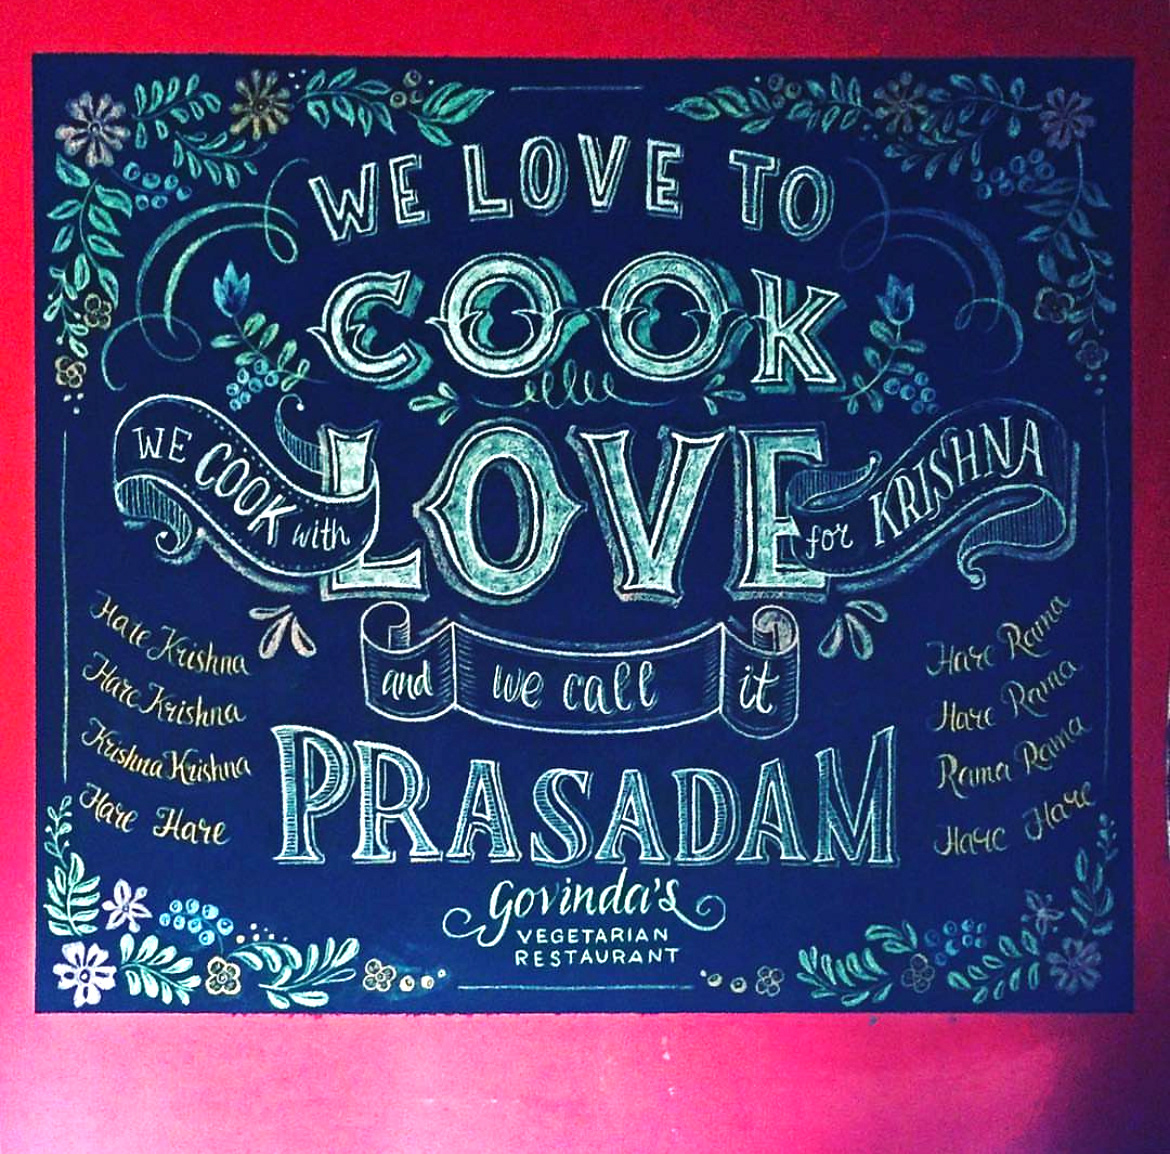 WE LOVE TO
COOK
WE COOK with
LOVE
for KRISHNA
and we call it
PRASADAM
Hare Krishna
Hare Krishna
Krishna Krishna
Hare Hare
Hare Rama
Hare Rama
Rama Rama
Hare Hare
Govinda's
VEGETARIAN
RESTAURANT